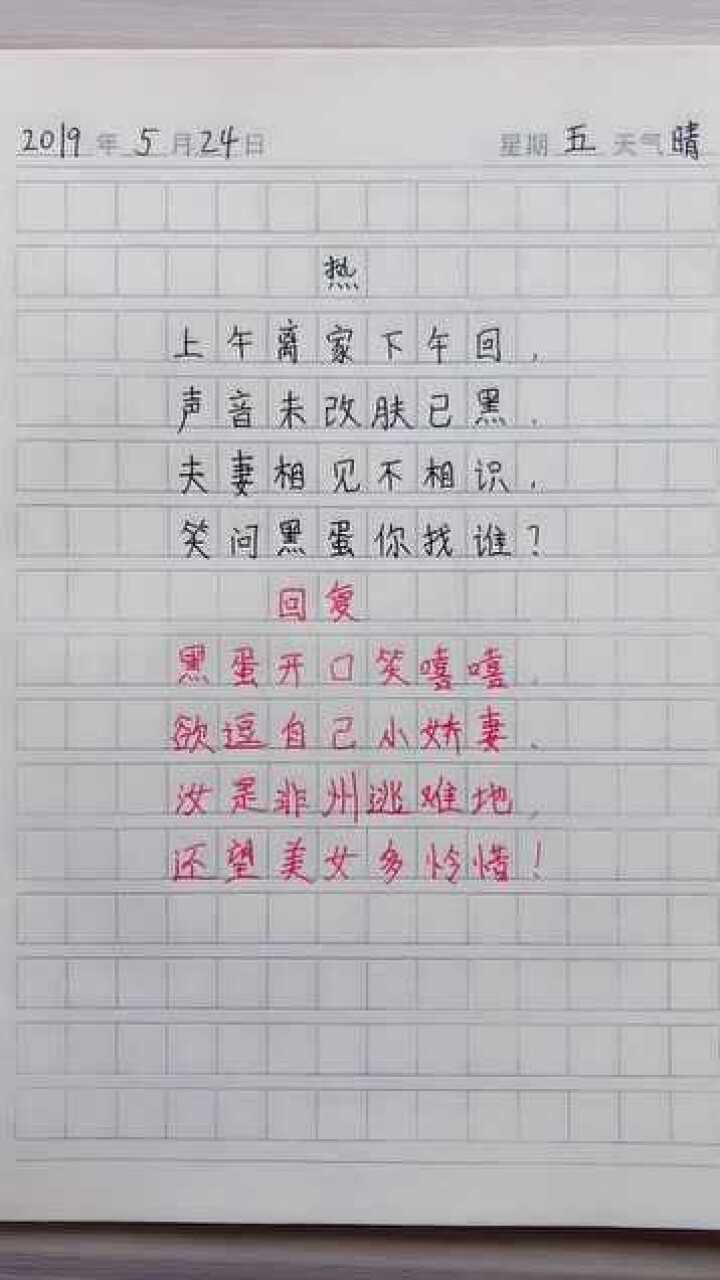 2019年5月24日 星期五 天气晴
热
上午离家下午回，
声音未改肤已黑．
夫妻相见不相识，
笑问黑蛋你找谁？
回复
黑蛋开口笑嘻嘻．
欲逗自己小娇妻．
汝是非州逃难地，
还望美女多怜惜！